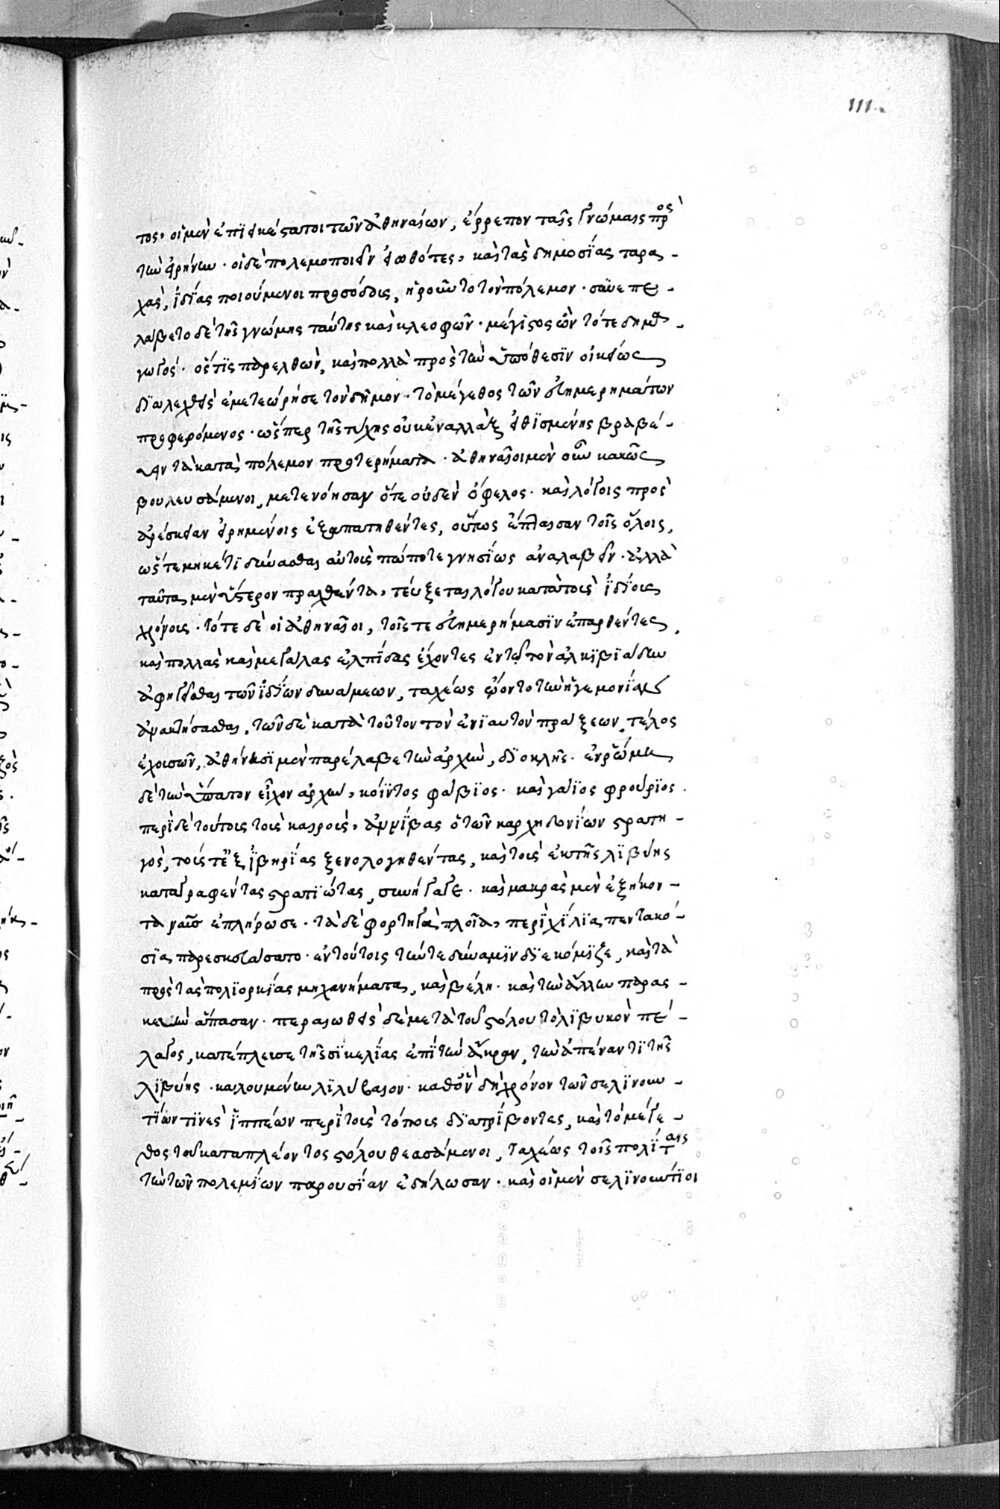 111
τος, οἱ μὲν ἐπιεικέστατοι τῶν ἀθηναίων, ἔρρεπον ταῖς γνώμαις πρὸς
τὴν εἰρήνην· οἱ δὲ πολεμοποιεῖν εἰωθότες, καὶ τὰς δημοσίας ταρα-
χὰς, ἰδίας ποιούμενοι προσόδους, ἡροῦντο τὸν πόλεμον· συνεπε-
λάβετο δὲ τῆς γνώμης ταύτης καὶ κλεοφῶν· μέγιστος ὢν τότε δημα-
γωγός· ὅστις παρελθὼν, καὶ πολλὰ πρὸς τὴν ὑπόθεσιν οἰκείως
διαλεχθεὶς ἐμετεώρησε τὸν δῆμον· τὸ μέγεθος τῶν εὐημερημάτων
προφερόμενος· ὥσπερ τῆς τύχης οὐκ ἐναλλὰξ εἰθισμένης βραβεύ-
ειν τὰ κατὰ πόλεμον προτερήματα· ἀθηναῖοι μὲν οὖν κακῶς
βουλευσάμενοι, μετενόησαν ὅτε οὐδὲν ὄφελος· καὶ λόγοις πρὸς
ἀρέσκειαν εἰρημένοις ἐξαπατηθέντες, οὕτως ἔπταισαν τοῖς ὅλοις,
ὥστε μηκέτι δύνασθαι αὑτοὺς πώποτε γνησίως ἀναλαβεῖν· ἀλλὰ
ταῦτα μὲν ὕστερον πραχθέντα, τεύξεται λόγου κατὰ τοὺς ἰδίους
χρόνους· τότε δὲ οἱ ἀθηναῖοι, τοῖς τε εὐημερήμασιν ἐπαρθέντες,
καὶ πολλὰς καὶ μεγάλας ἐλπίδας ἔχοντες ἐν τῷ τὸν ἀλκιβιάδην
ἀφηγεῖσθαι τῶν ἰδίων δυνάμεων, ταχέως ᾤοντο τὴν ἡγεμονίαν
ἀνακτήσασθαι. τῶν δὲ κατὰ τοῦτον τὸν ἐνιαυτὸν πράξεων, τέλος
ἐχουσῶν, ἀθήνησι μὲν παρέλαβε τὴν ἀρχὴν, διοκλῆς. ἐν ῥώμῃ
δὲ τὴν ὕπατον εἶχον ἀρχὴν, κόιντος φάβιος· καὶ γάιος φρούριος.
περὶ δὲ τούτους τοὺς καιροὺς, ἀννίβας ὁ τῶν καρχηδονίων στρατη-
γὸς, τούς τε ἐξ ἰβηρίας ξενολογηθέντας, καὶ τοὺς ἐκ τῆς λιβύης
καταγραφέντας στρατιώτας, συνήγαγε. καὶ μακρὰς μὲν ἑξήκον-
τα ναῦς ἐπλήρωσε· τὰ δὲ φορτηγὰ πλοῖα, περὶ χίλια πεντακό-
σια παρεσκευάσατο· ἐν τούτοις τήν τε δύναμιν διεκόμιζε, καὶ τὰ
πρὸς τὰς πολιορκίας μηχανήματα, καὶ βέλη· καὶ τὴν ἄλλην παρασ-
κευὴν ἅπασαν· περαιωθεὶς δὲ μετὰ τοῦ στόλου τὸ λιβυκὸν πέ-
λαγος, κατέπλευσε τῆς σικελίας ἐπὶ τὴν ἄκραν, τὴν ἀπέναντι τῆς
λιβύης· καλουμένην λιλύβαιον· καθ' ὃν δὴ χρόνον τῶν σελινουν-
τίων τινὲς ἱππέων περὶ τοὺς τόπους διατρίβοντες, καὶ τὸ μέγε-
θος τοῦ καταπλέοντος στόλου θεασάμενοι, ταχέως τοῖς πολίταις
τὴν τῶν πολεμίων παρουσίαν ἐδήλωσαν· καὶ οἱ μὲν σελινούντιοι